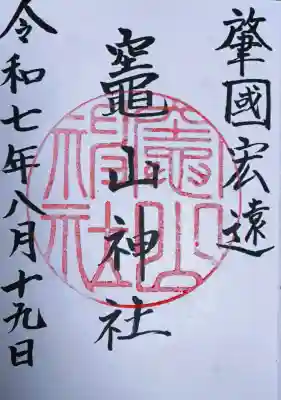 肇國宏遠
竈山神社
竈山神社
令和七年八月十九日